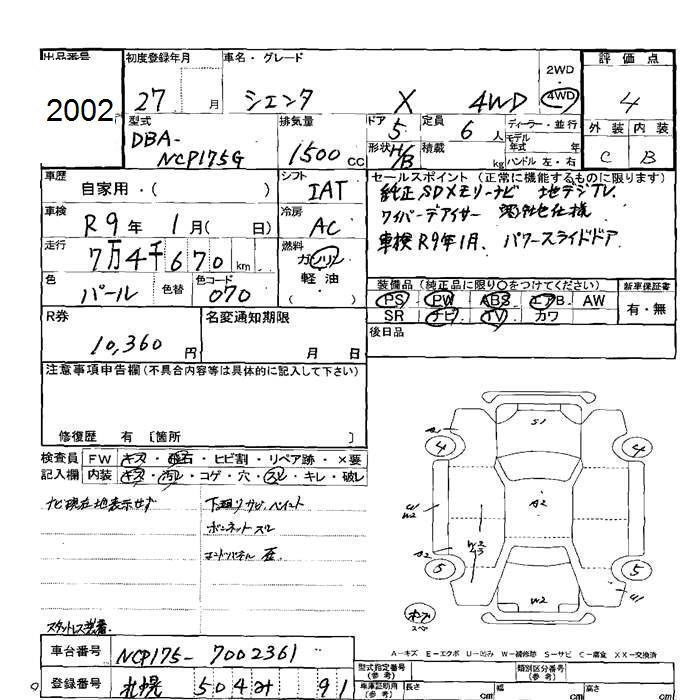 出品番号 初度登録年月 車名・グレード 2WD・4WD 評価点
2002 27 月 シエンタ X 4WD 4
型式 排気量 ドア 定員 ディーラー・並行 外装 内装
DBA- 5 6人 モデル年式 年
NCP175G 1500cc 形状 H/B 積載 kg ハンドル 左・右 C B
車歴 シフト セールスポイント(正常に機能するものに限ります)
自家用・( ) IAT 純正SDメモリーナビ 地デジTV
車検 冷房 ワイパーデアイサー 寒冷地仕様
R9年 1月( 日) AC 車検R9年1月、パワースライドドア
走行 燃料
7万4千670km ガソリン
色 色替 色コード 軽油 装備品(純正品に限り○をつけてください) 新車保証書
パール 070 ( ) PS・PW・ABS・エアB・AW 有・無
R券 名変通知期限 SR・ナビ・TV・カワ
10,360円 月 日 後日品
注意事項申告欄(不具合内容等は具体的に記入して下さい)
修復歴 有 〔箇所 〕
検査員 FW キズ・飛石・ヒビ割・リペア跡・×要
記入欄 内装 キズ・汚レ・コゲ・穴・スレ・キレ・破レ
ナビ現在地表示せず 下廻りサビ、ペイント
ボンネットスレ
エンドパネル歪
スタットレス装着
S1
A1 4 4
A2
U W2 W2 U3
A2 5 5 U1
W2
スペア
A-キズ E-エクボ U-凹み W-補修跡 S-サビ C-腐食 XX-交換済
車台番号 NCP175-7002361 型式指定番号(参考) 類別区分番号(参考)
登録番号 札幌 504 み 91 車庫証明用(参考) 長さ cm 幅 cm 高さ cm